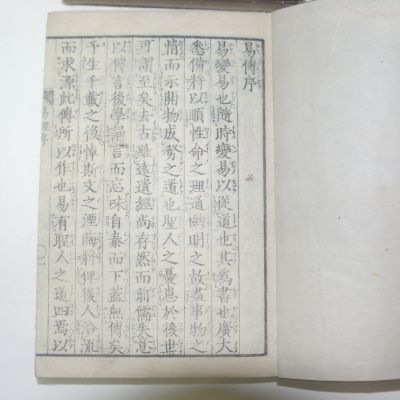 易傳序
易變易也隨時變易以從道也其爲書也廣大
悉備將以順性命之理通幽明之故盡事物之
情而示開物成務之道也聖人之憂患於後世
可謂至矣去古雖遠遺經尚存然而前儒失意
以傳言後學誦言而忘味自秦而下蓋無傳矣
予生千載之後悼斯文之湮晦將俾後人沿流
而求源此傳所以作也易有聖人之道四焉以